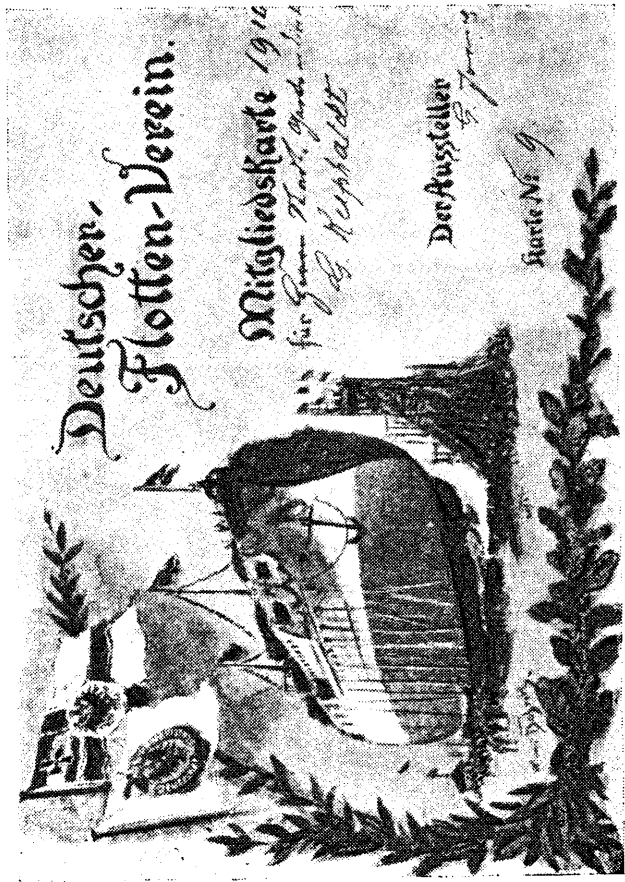 Deutscher-
Flotten-Verein.
Mitgliedskarte 1910
für Herrn
G. Kuphaldt
Der Aussteller
Karte No 9